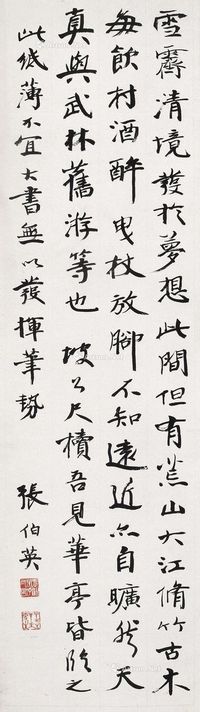 雪霽清境發於夢想此間但有荒山大江脩竹古木
每飲村酒醉曳杖放腳不知遠近亦自曠然天
真與武林舊游等也坡公尺牘吾見華亭皆臨之
此紙薄不宜大書無以發揮筆勢
張伯英